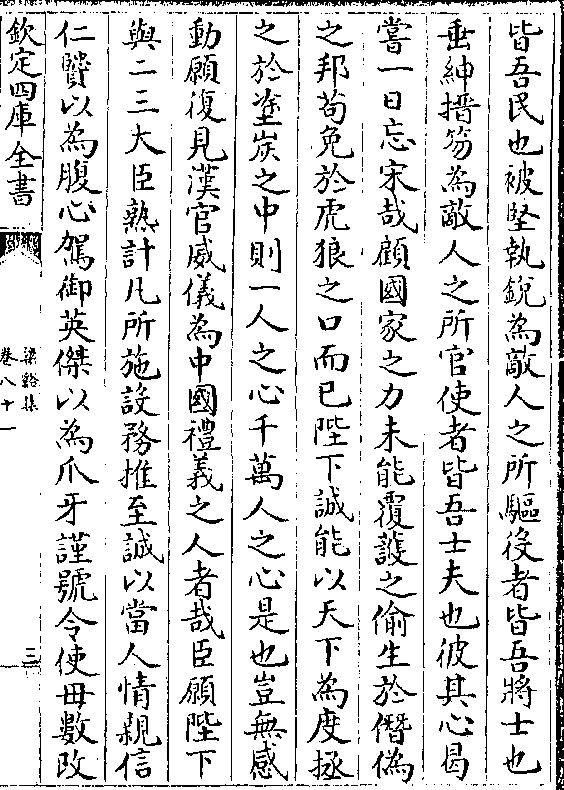 皆吾民也被堅執鋭為敵人之所驅役者皆吾將士也
垂紳搢笏為敵人之所官使者皆吾士夫也彼其心曷
嘗一日忘宋哉顧國家之力未能覆護之偷生於僭偽
之邦茍免於虎狼之口而已陛下誠能以天下為度拯
之於塗炭之中則一人之心千萬人之心是也豈無感
動願復見漢官威儀為中國禮義之人者哉臣願陛下
與二三大臣熟計凡所施設務推至誠以當人情親信
仁賢以為腹心駕御英傑以為爪牙謹號令使毋數改
欽定四庫全書
梁谿集
卷八十一
三